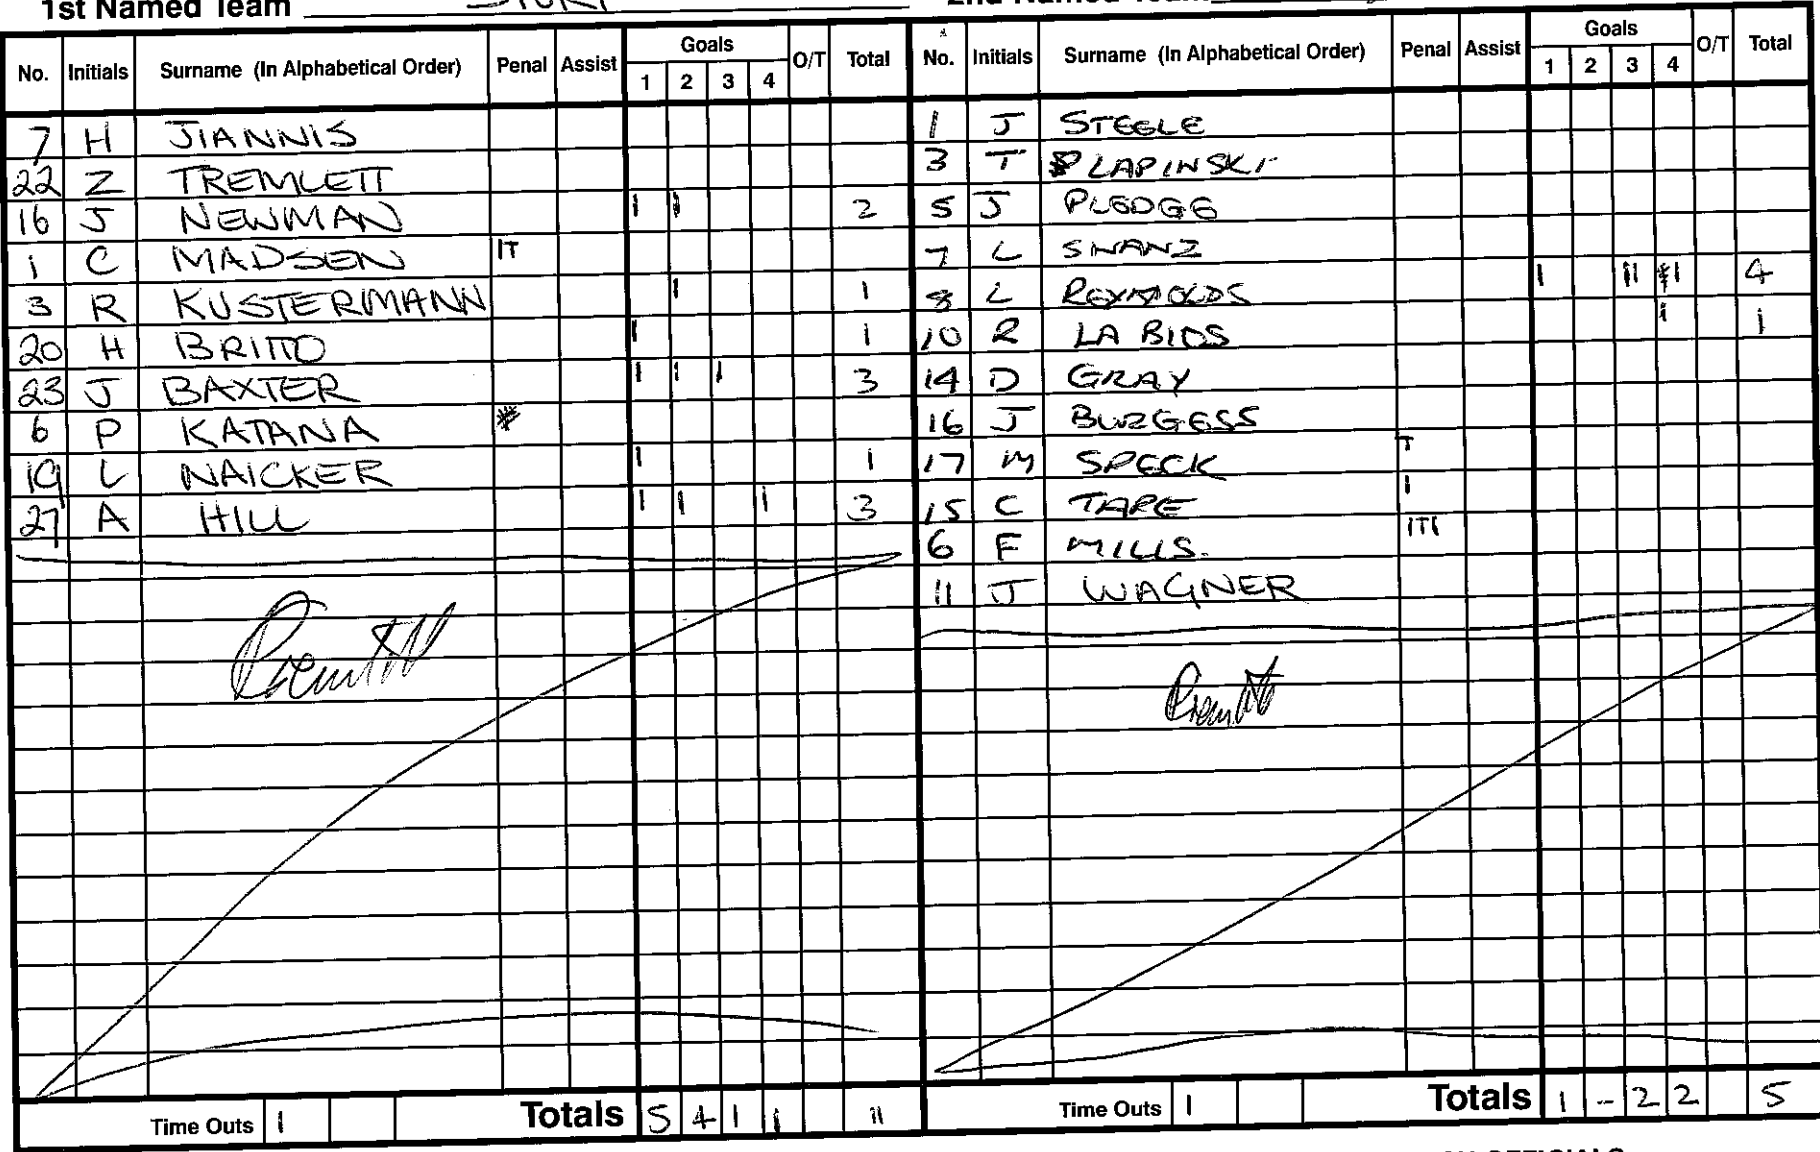 1st Named Team
No. Initials Surname (In Alphabetical Order) Penal Assist Goals 1 2 3 4 O/T Total
7 H JIANNIS
22 Z TREMLETT
16 J NEWMAN 1 11 2
1 C MADSEN IT
3 R KUSTERMANN 1 1
20 H BRITTO 1 1
23 J BAXTER 1 1 1 3
6 P KATANA
19 L NAICKER 1 1
27 A HILL 1 1 1 3
Time Outs 1 Totals 5 4 1 1 11
No. Initials Surname (In Alphabetical Order) Penal Assist Goals 1 2 3 4 O/T Total
1 J STEELE
3 T LAPINSKI
5 J PLEDGE
7 L
8 L REYNOLDS 1 11 4
10 R LA BIOS 1 1
14 D GRAY
16 J BURGESS
17 M SPECK T
15 C TAPE 1
6 F MILLS. ITI
11 J WAGNER
Time Outs 1 Totals 1 - 2 2 5